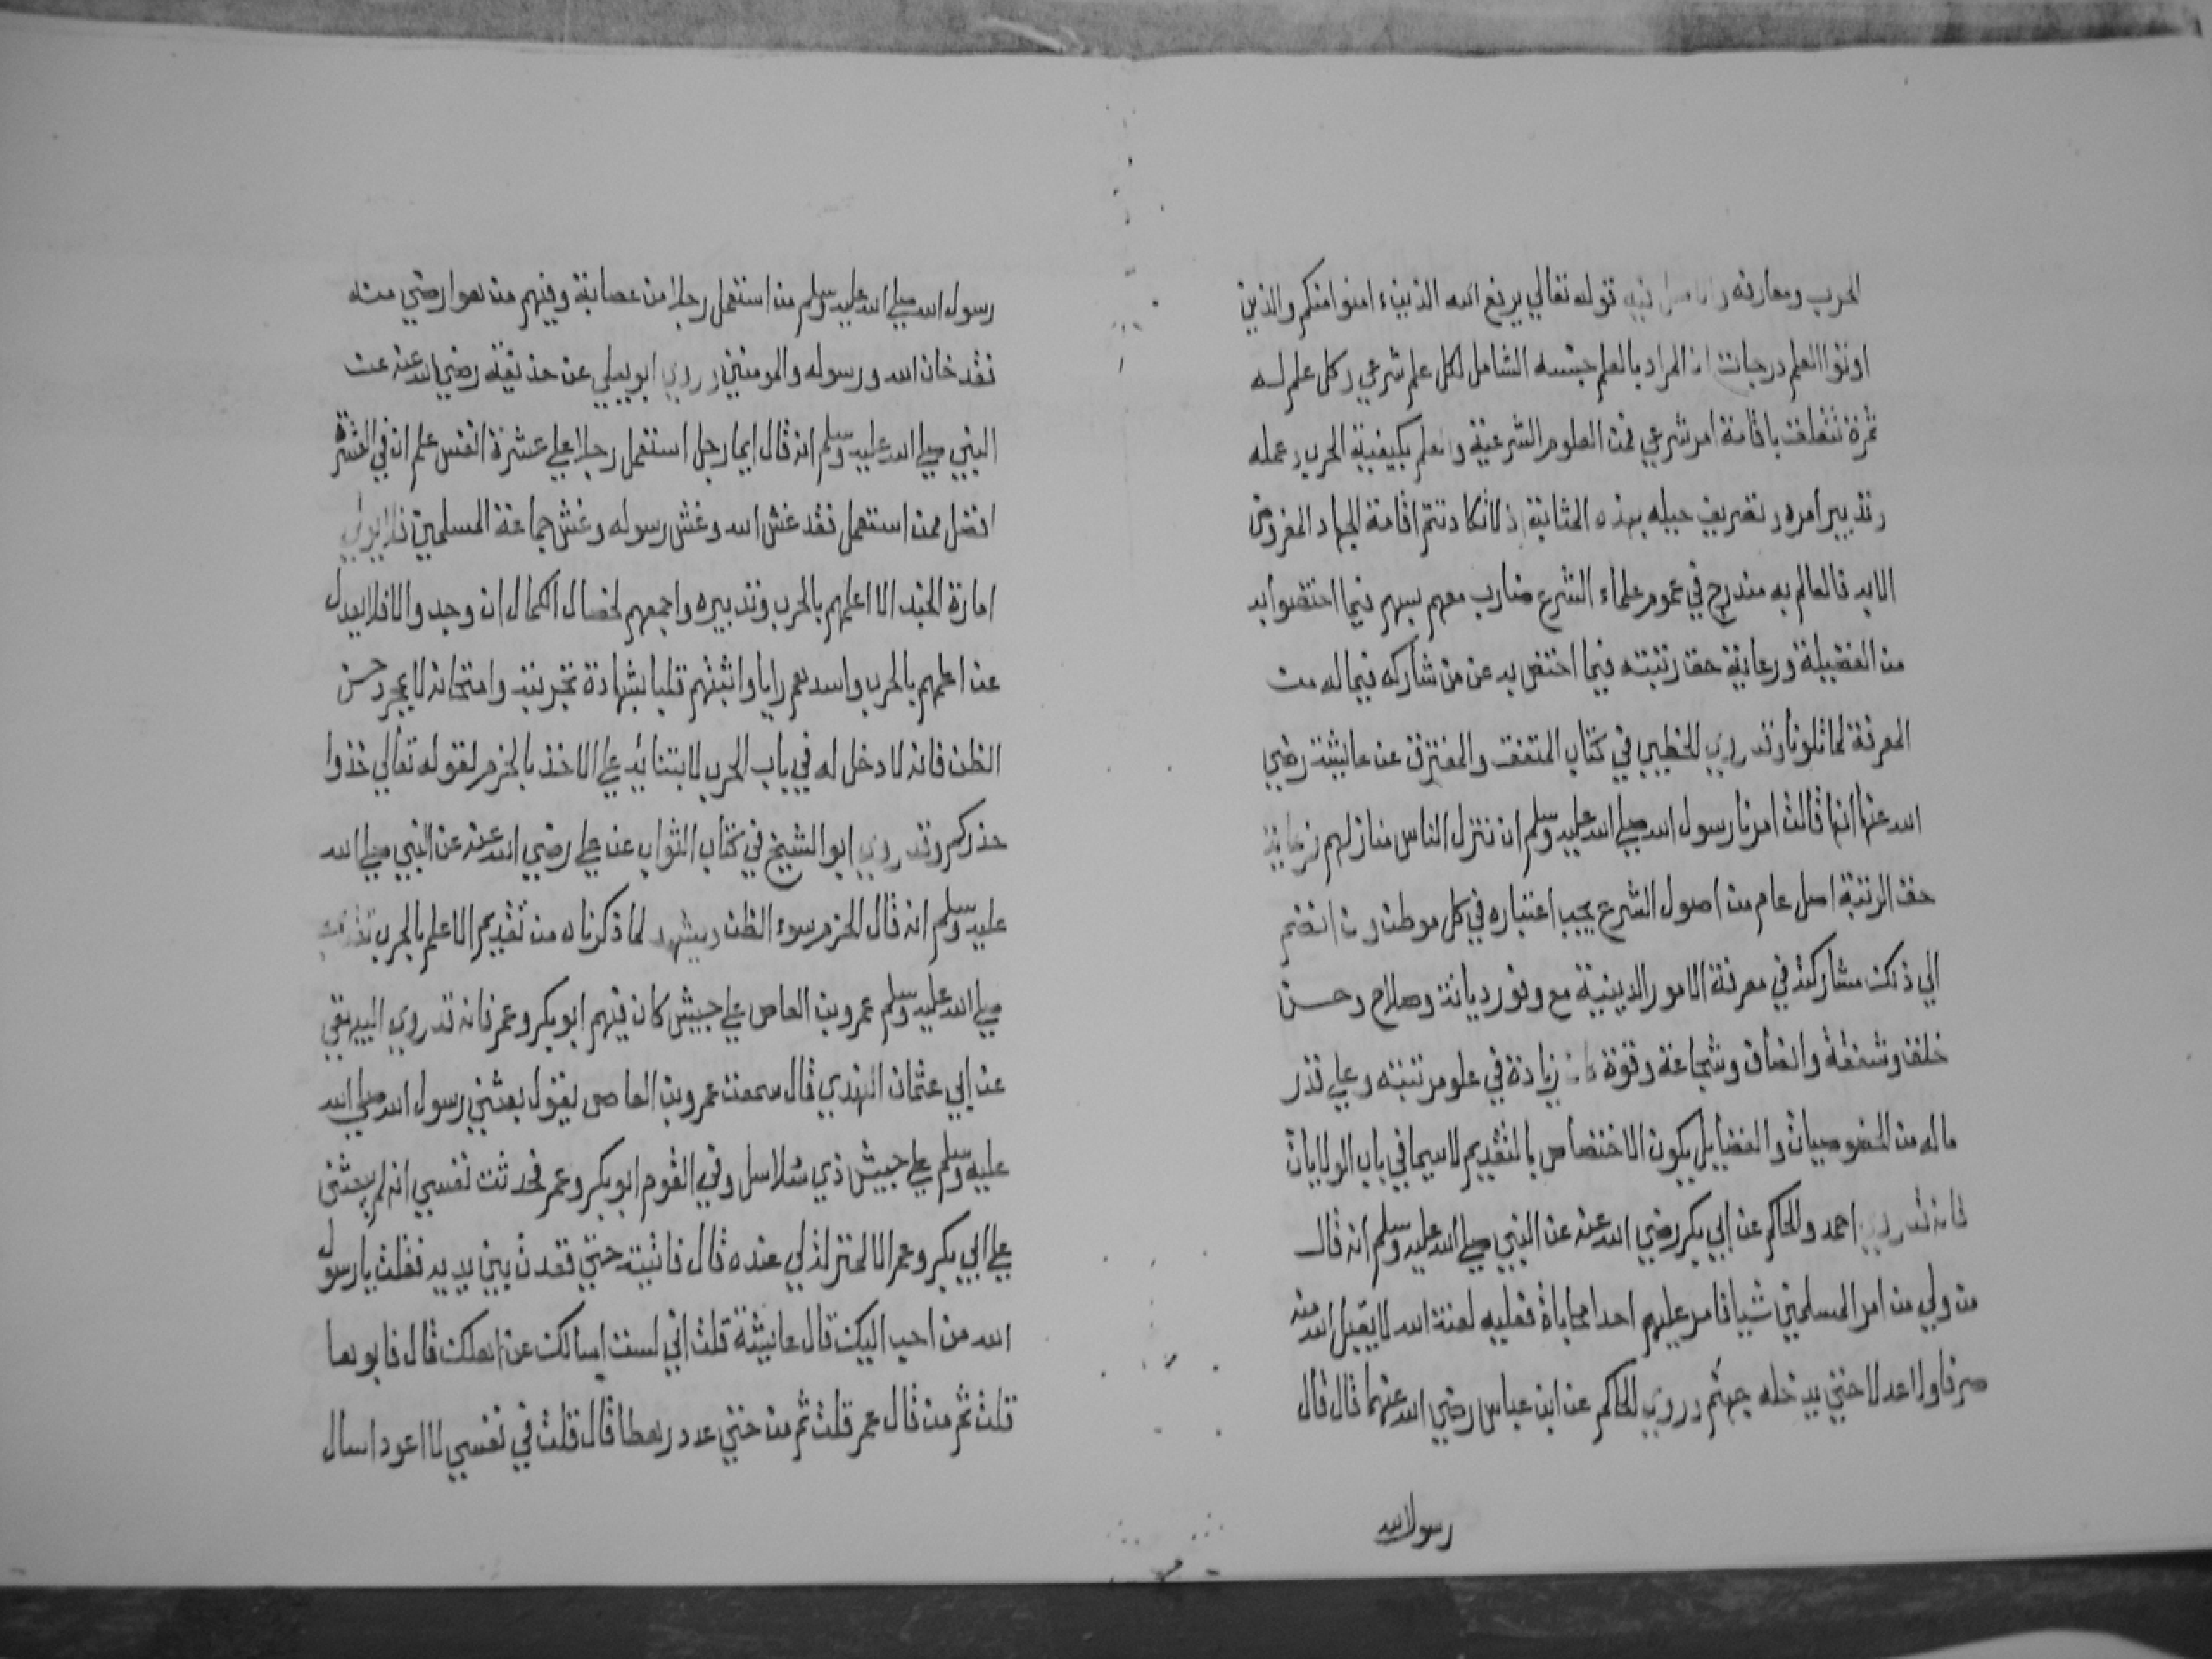 الحرب ومعارفه والاصل فيه قوله تعالي يرفع الله الذين ءامنوا منكم والذين
اوتوا العلم درجات اذ المراد بالعلم جنسه الشامل لكل علم شرعي وكل علم لــه
ثمرة تتعلق باقامة امر شرعي فمن العلوم الشرعية والعلم بكيفية الحرب وعمله
وتدبير امره وتصريف حيله بهذه المثابة اذ لا تكاد تتم اقامة الجهاد المفروض
الا به فالعالم به مندرج في عموم علماء الشرع ضارب معهم بسهم فيما اختصوا به
من الفضيلة ورعاية حق رتبته فيما اختص به عن من شاركه فيما له من
المعرفة لما تلونا وقد روي الخطيب في كتاب المتفق والمفترق عن عايشة رضي
الله عنها انها قالت امرنا رسول الله صلي الله عليه وسلم ان ننزل الناس منازلهم فرعاية
حق الرتبة اصل عام من اصول الشرع يجب اعتباره في كل موطن وان انضم
الي ذلك مشاركته في معرفة الامور الدينية مع وفور ديانة وصلاح وحسن
خلق وشفقة وانصاف وشجاعة وقوة كان زيادة في علو مرتبته وعلي قدر
ما له من الخصوصيات والفضايل يكون الاختصاص بالتقديم لا سيما في باب الولايات
فانه قد روي احمد والحاكم عن ابي بكر رضي الله عنه عن النبي صلي الله عليه وسلم انه قال
من ولي من امر المسلمين شيا فامر عليهم احدا محاباة فعليه لعنة الله لا يقبل الله منه
صرفا ولا عدلا حتي يدخله جهنم وروي الحاكم عن ابن عباس رضي الله عنهما قال قال
رسول الله
رسول الله صلي الله عليه وسلم من استعمل رجلا من عصابة وفيهم من هو ارضي منه
فقد خان الله ورسوله والمومنين وروي ابو يعلي عن حذيفة رضي الله عنه عن
النبي صلي الله عليه وسلم انه قال ايما رجل استعمل رجلا علي عشرة انفس علم ان في العشرة
افضل ممن استعمل فقد غش الله وغش رسوله وغش جماعة المسلمين فلا يولي
امارة الجند الا اعلمهم بالحرب وتدبيره واجمعهم لخصال الكمال ان وجد والا فلا يعدل
عن اعلمهم بالحرب واسدهم رايا واثبتهم قلبا بشهادة تجربته وامتحانه لا بمجرد حسن
الظن فانه لا دخل له في باب الحرب لابتنائه علي الاخذ بالحزم لقوله تعالي خذوا
حذركم وقد روي ابو الشيخ في كتاب الثواب عن علي رضي الله عنه عن النبي صلي الله
عليه وسلم انه قال الحزم سوء الظن ويشهد لما ذكرناه من تقديم الاعلم بالحرب تقديمه
صلي الله عليه وسلم عمرو بن العاص علي جيش كان فيهم ابو بكر وعمر فانه قد روي البيهقي
عن ابي عثمان النهدي قال سمعت عمرو بن العاص يقول بعثني رسول الله صلي الله
عليه وسلم علي جيش ذي سلاسل وفي القوم ابو بكر وعمر فحدثت نفسي انه لم يبعثني
علي ابي بكر وعمر الا لمنزلة لي عنده قال فاتيته حتي قعدت بين يديه فقلت يا رسول
الله من احب اليك قال عايشة قلت اني لست اسالك عن اهلك قال فابوها
قلت ثم من قال عمر قلت ثم من حتي عدد رهطا قال قلت في نفسي لا اعود اسال